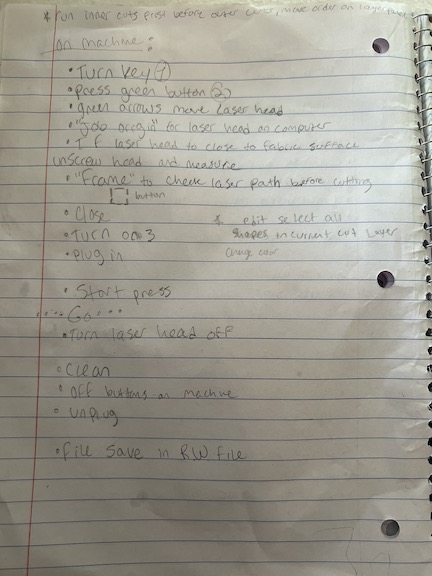 * run inner cuts first before outer cuts, move order on layer
on machine:
• Turn key ①
• Press green button ②
• green arrows move laser head
• "Job origin" for laser head on computer
• If laser head to close to fabric surface
unscrew head and measure
• "Frame" to check laser path before cutting
button
• Close
* edit select all
• Turn on 3
shapes in current cut layer
• Plug in
change color
• Start press
....Go....
• Turn laser head off
• Clean
• off buttons on machine
• unplug
• file save in RW file